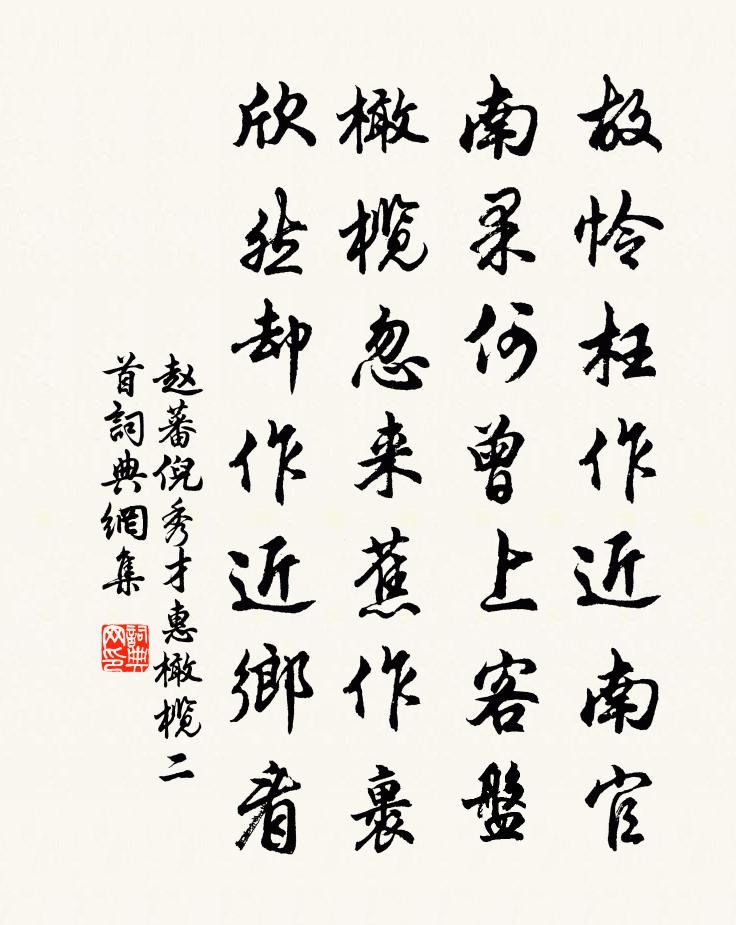 故怜枉作近南官
南果何曾上客盤
橄榄忽来蕉作裹
欣然却作近鄉看
赵蕃倪秀才惠橄榄二
首詞典網集
詞典网印